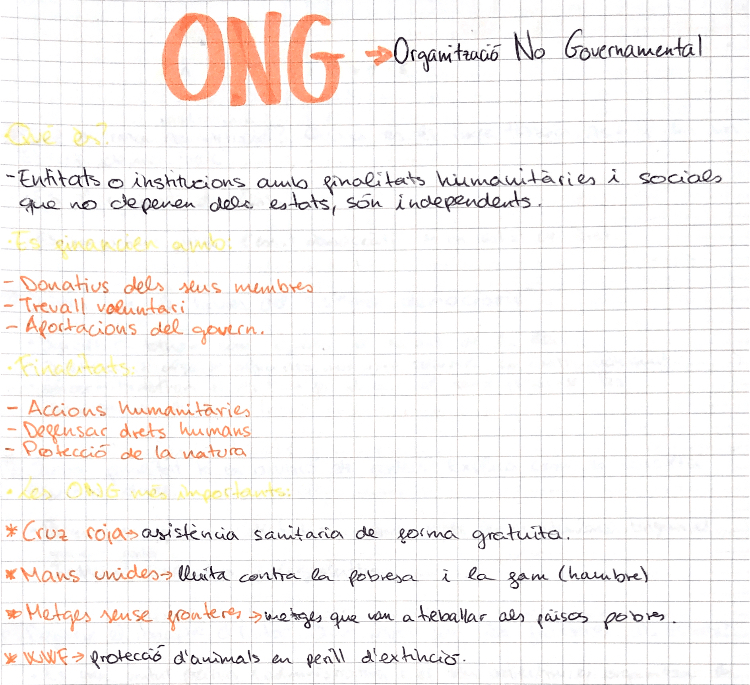 ONG → Organització No Governamental
Qué es?
- Entitats o institucions amb finalitats humanitàries i socials
que no depenen dels estats, són independents.
· Es financien amb:
- Donatius dels seus membres
- Trevall voluntari
- Aportacions del govern.
· Finalitats:
- Accions humanitàries
- Defensar drets humans
- Protecció de la natura
· Les ONG més importants:
* Cruz roja → asistència sanitaria de forma gratuita.
* Mans unides → lluita contra la pobresa i la gam (hambre)
* Metges sense fronteres → metges que van a treballar als països pobres.
* WWF → protecció d'animals en perill d'extinció.